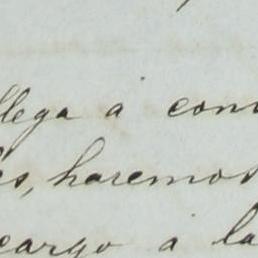 llega á con
es, haremos
cargo á la